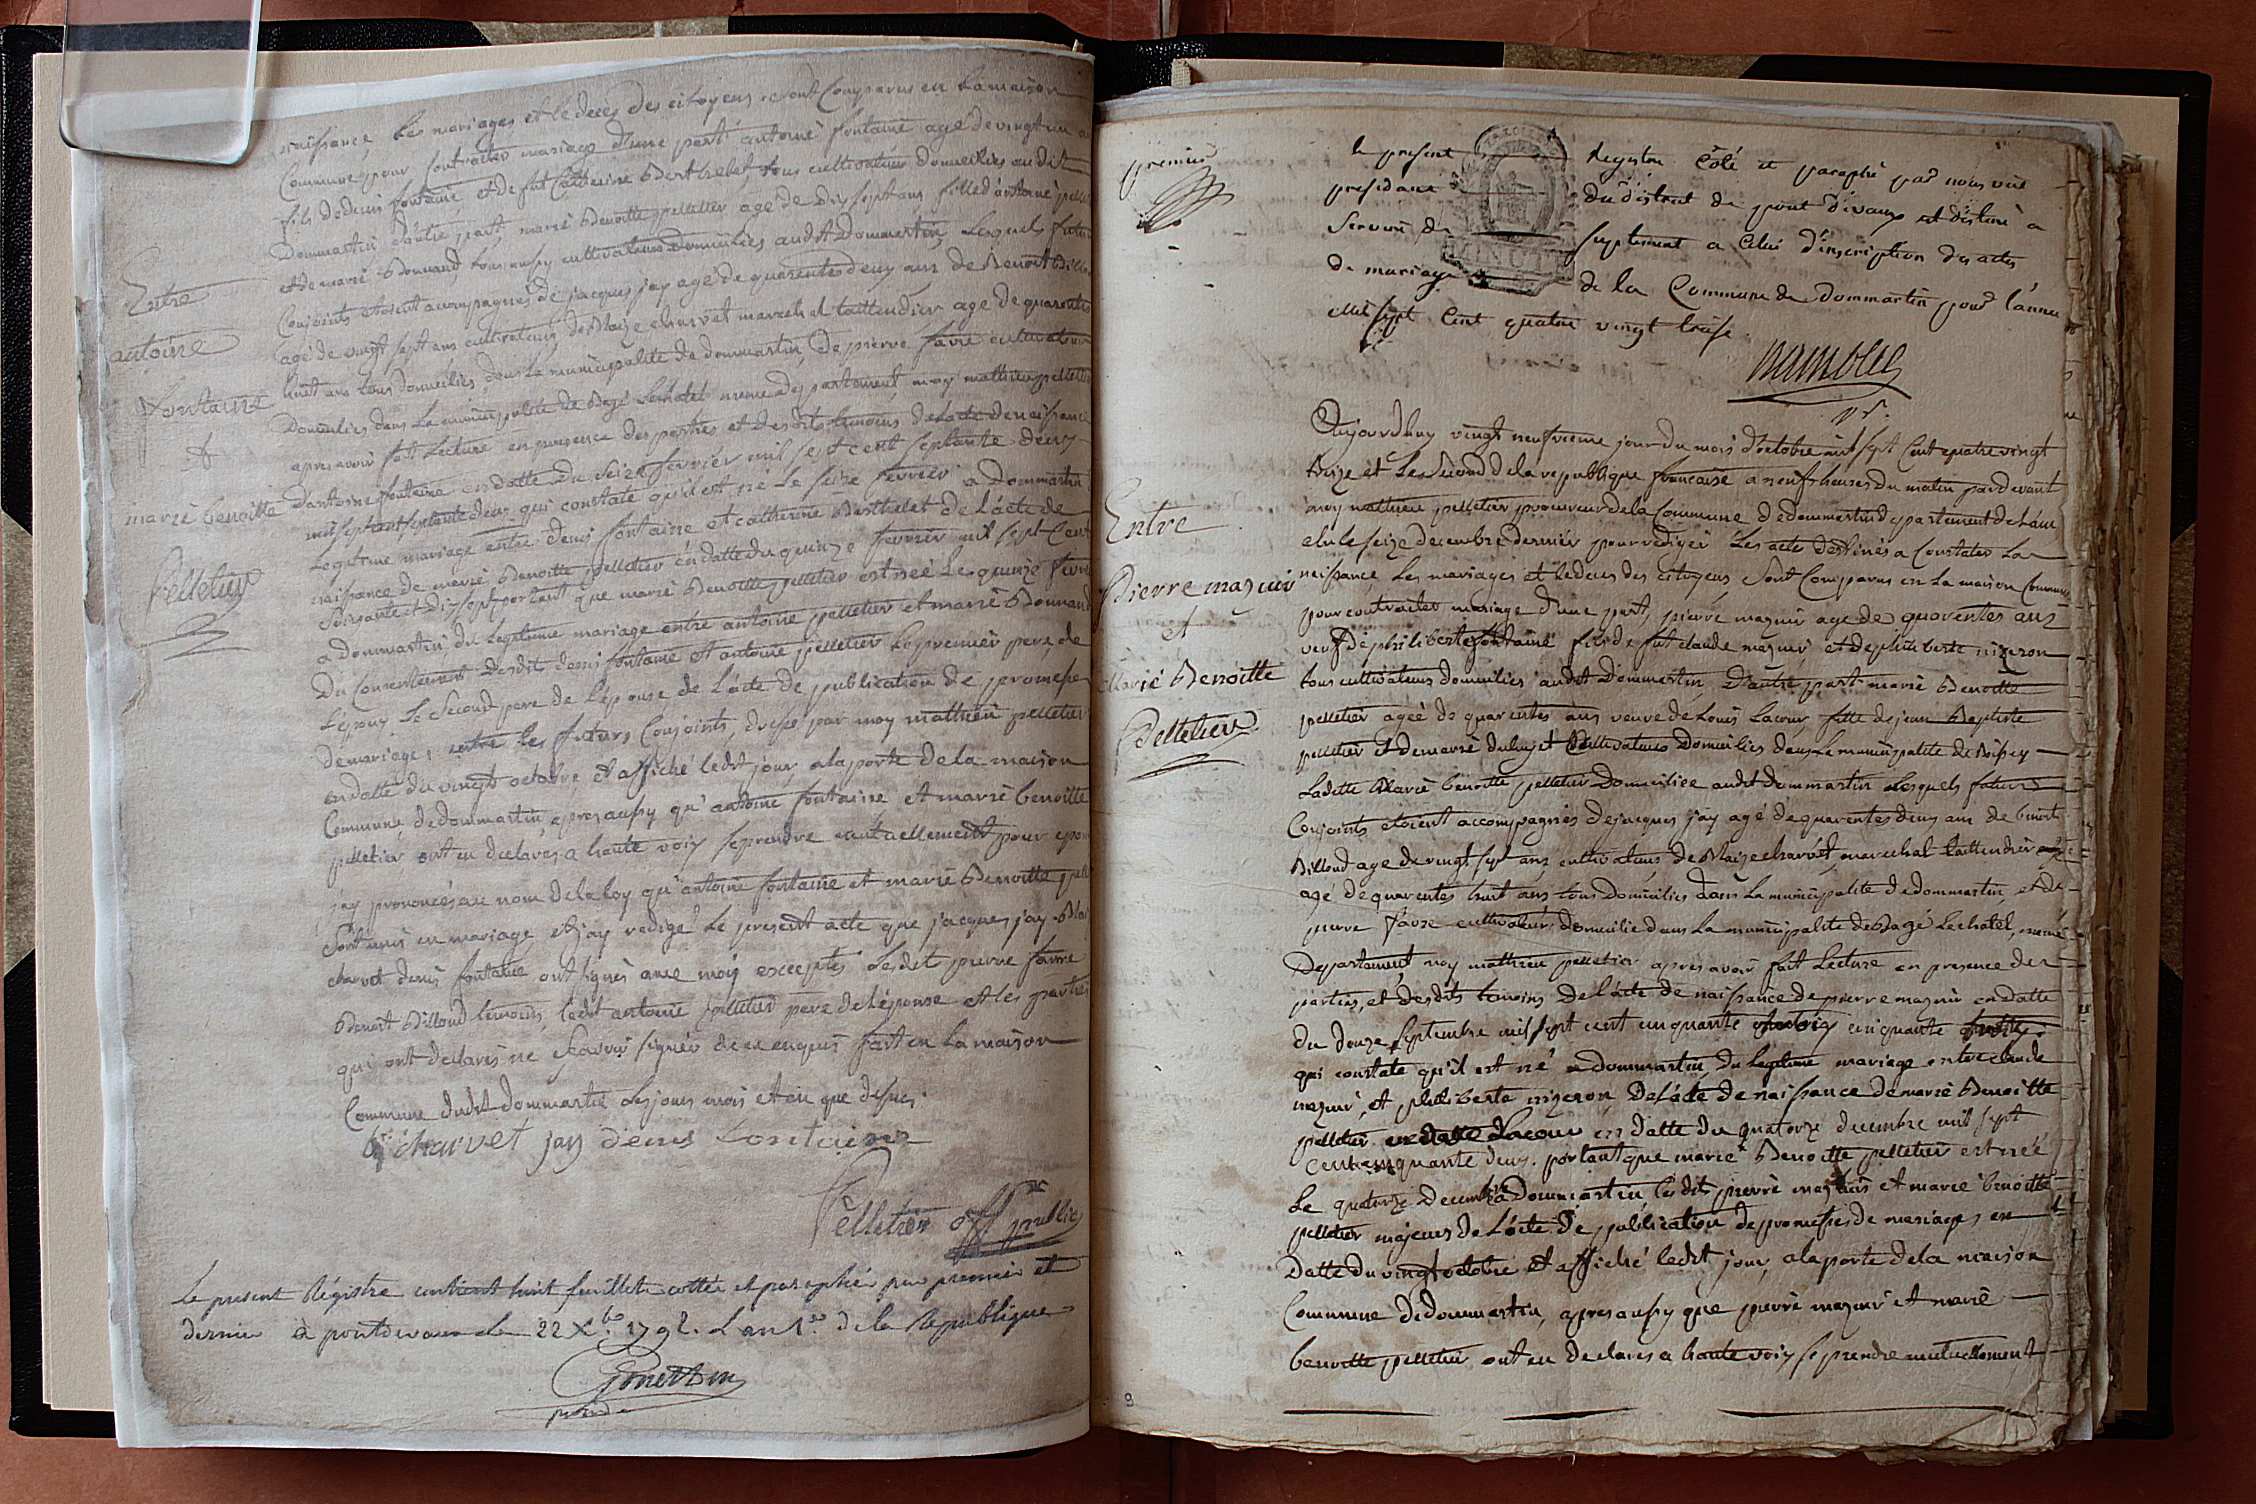 naissance les mariages et le décès des citoyens sont Comparus en la maison
Commune pour Contracter mariage d'une part antoine fontaine age de vingt un
fils de denis fontaine et de fut Catherine Berthelet tous cultivateurs domiciliés audit
Dommartin d'autre part marie Benoitte pelletier age de dix sept ans fille d'antoine
et de marie Bonnand tous aussy cultivateurs Domiciliés audit Dommartin Lesquels futurs
Conjoints etoient acompagnés de jacques jay age de quarentes deux ans de Benoit
agé de vingt sept ans cultivateurs de Blaize charvet marechal taillendier age de quarentes
huit ans tous domiciliés dans la municipalité de dommartin De pierre favre cultivateur
Domiciliés dans La municipalité de Bagé Lechatel meme departement moy mathieu pelletier
apres avoir fait Lecture en presence des parties et desdits temoins de Lacte de naissance
D'antoine fontaine en datte du seize fevrier mil sept cent septante deux
mil sept cent septante deux qui constate qu'il est né le seize fevrier a Dommartin
Legitime mariage entre denis fontaine et catherine Berthelet de L'acte de
naissance de marie Benoitte pelletier en datte du quinze fevrier mil sept Cent
soissante et dix sept portant que marie Benoitte pelletier est née Le quinze
a dommartin du Legitime mariage entre antoine pelletier et marie Bonnand
Du consentement desdit denis fontaine et antoine pelletier Le premier pere de
L'epoux Le Second pere de L'epouse de L'acte de publication de promesse
de mariage entre les futurs Conjoints dressé par moy mathieu pelletier
en datte du vingt octobre et affiché ledit jour a la porte de la maison
Commune de dommartin, apres aussy qu'antoine fontaine et marie benoitte
pelletier ont eu declarés a haute voix se prendre mutuellement pour
jay prononcés au nom de la loy qu'antoine fontaine et marie Benoitte
sont unis en mariage et jay redigé Le present acte que jacques jay
charvet denis fontaine ont signés avec moy exceptés Ledit pierre favre
Benoit Billoud temoins, ledit antoine pelletier pere de L'epouse et les parties
qui ont declarés ne sçavoir signer de ce enquis fait en La maison
Commune dudit dommartin Les jours mois et an que dessus
charvet jay denis fontaine
Pelletier off public
Le present Régistre contient huit feuillets cottés et paraphés par premier et
dernier à pontdevaux le 22 Xbre 1792. L'an 1er de la République
Entre
antoine
fontaine
&
marie benoitte
Pelletier
premier
le present Registre Côté et paraphé par nous vice
president du district de pont de vaux et destiné à
Servir de suplement a Celui d'inscription des actes
de mariage de la Commune de Dommartin pour l'année
Mil sept Cent quatre vingt treise
Entre
Pierre mazuir
et
Marie Benoitte
Pelletier
Aujourdhuy vingt neufvieme jour du mois d'octobre mil sept Cent quatre vingt
treize et Le Second de la republique francaise a neuf heures du matin pardevant
moy mathieu pelletier procureur de la Commune de dommartin departement de L'ain
elu le seize decembre dernier pour rediger Les acte destinés a Constater La
naissance Les mariages et le deces des citoyens Sont Comparus en La maison Commune
pour contracter mariage d'une part, pierre mazuir age de quarentes ans
veuf de philiberte fontaine fils de fut claude mazuir et de philiberte nizeron
tous cultivateurs domiciliés audit Dommartin D'autre part marie Benoitte
pelletier agée de quarentes ans veuve de Louis Lacour fille de jean Baptiste
pelletier et de marie Cultivateurs Domiciliés dans Le municipalité de
Ladette Marie benoitte pelletier Domiciliée audit dommartin Lesquels futurs
Conjoints etoient accompagnés de jacques jay agé de quarentes deux ans de benoit
Billoud age de vingt sept ans cultivateurs de Blaize charvet marechal taillendier
agé de quarentes huit ans tous Domiciliés dans La municipalité de dommartin, et de
pierre favre cultivateur domicilié dans La municipalité de Bagé Lechatel, meme
Departement moy mathieu pelletier apres avoir fait Lecture en presence des
parties, et desdits temoins De L'acte de naissance de pierre mazuir en datte
du douze septembre mil sept cent cinquante cinquante
qui constate qu'il est né a dommartin du Legitime mariage entre claude
mazuir et philiberte nizeron De L'acte de naissance de marie Benoitte
pelletier en datte du quatorze decembre mil sept
cent cinquante deux portant que marie Benoitte pelletier est née
Le quatorze decembre a Dommartin lesdits pierre mazuir et marie benoitte
pelletier majeurs de L'acte de publication de promesses de mariages en
Datte du vingt octobre et affiché ledit jour, a la porte de la maison
Commune de dommartin, apres aussy que pierre mazuir et marie
benoitte pelletier ont eu declarés a haute voix se prendre mutuellement
9